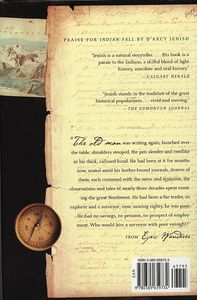 PRAISE FOR INDIAN FALL BY D'ARCY JENISH
"Jenish is a natural storyteller. . . . His book is a
paean to the Indians, a skilful blend of light
history, anecdote and oral history."
CALGARY HERALD
"Jenish stands in the tradition of the great
historical popularizers. . . . vivid and moving."
THE EDMONTON JOURNAL
"The old man was writing again, hunched over the
table, shoulders stooped, the pen slender and rodlike
in his thick, callused hand. He had been at it for months
now, seated amid his leather-bound journals, dozens of
them, each crammed with the notes and itemizations, the
observations and tales of nearly three decades spent roam-
ing the great Northwest. He had been a fur trader, an
explorer and a surveyor; now, nearing eighty, he was poor.
He had no savings, no pension, no prospect of employ-
ment. Who would hire a surveyor with poor eyesight?"
FROM Epic Wanderer
ISBN 0-385-65973-8